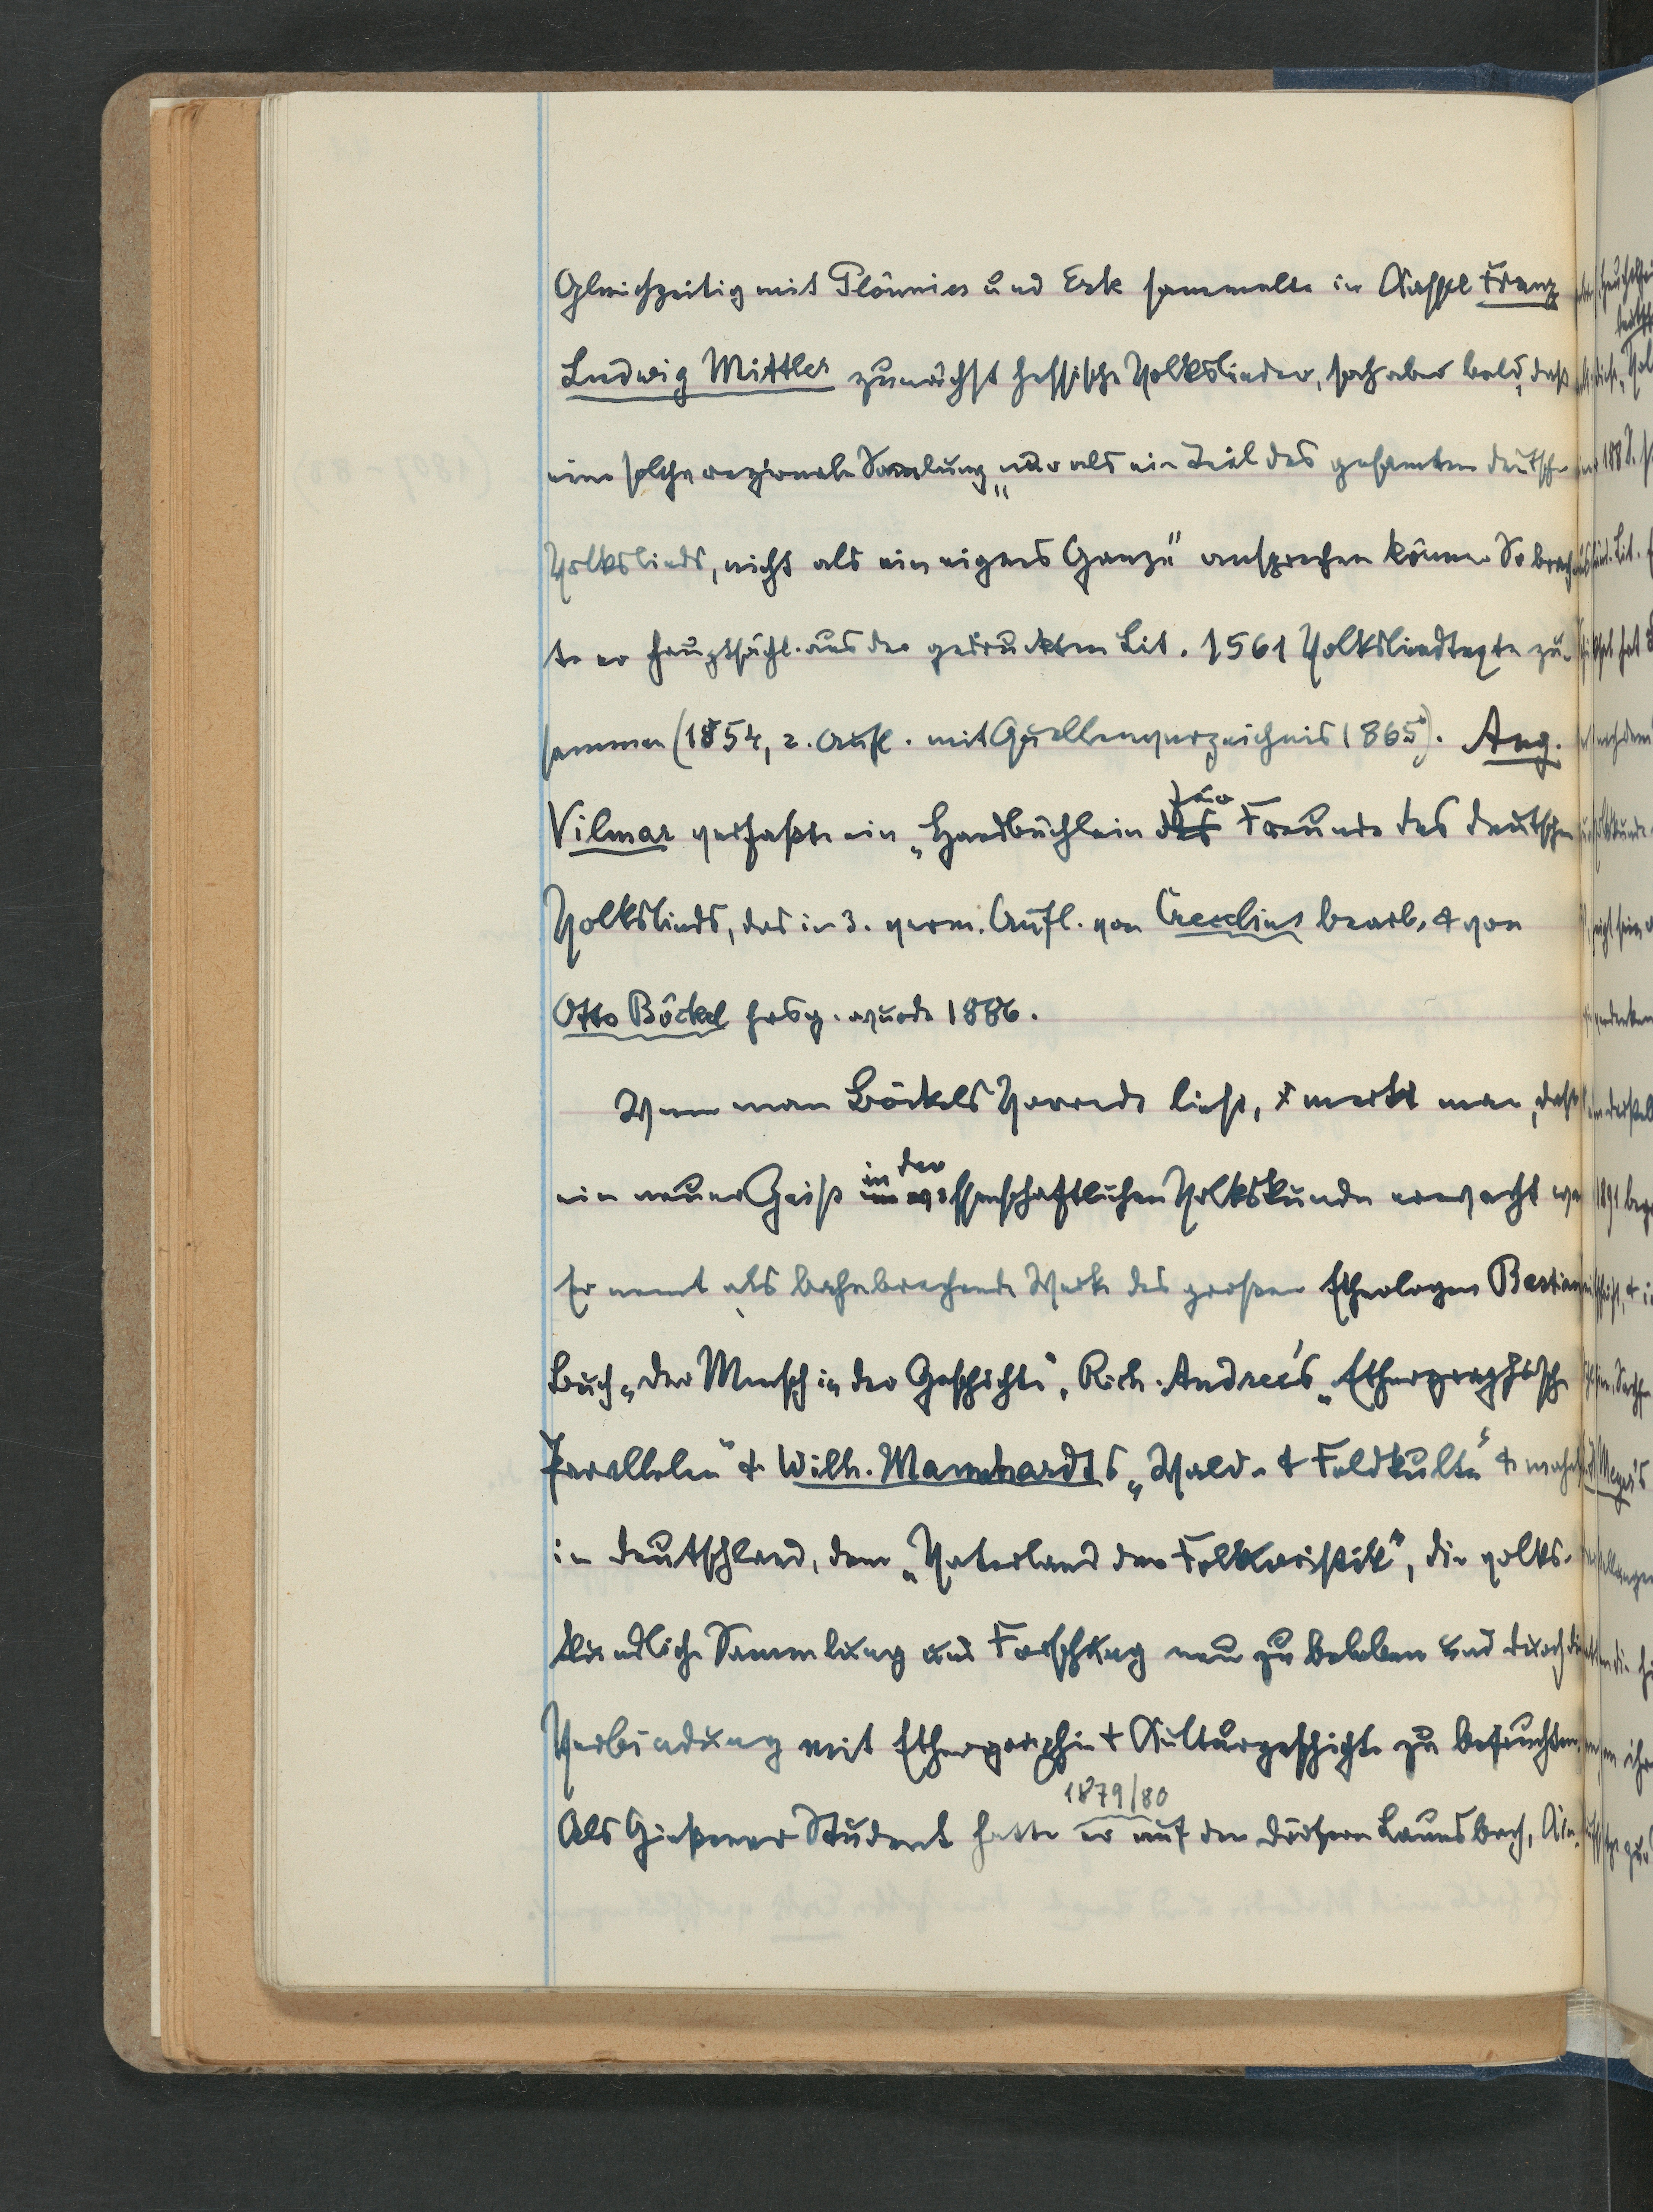 Gleichzeitig mit Plönnies und Erk sammelte in Kassel Franz
Ludwig Mittler zunächst hessische Volkslieder, sah aber bald, daß
eine solche regionale Sammlung „nur als ein Teil des gesamten deutschen
Volkslieds, nicht als ein eignes Ganze" ansprechen könne. So brach-
te er hauptsächl. aus der gedruckten Lit. 1561 Volksliedtexte zu-
sammen (1854, 2. Aufl. mit Quellenverzeichnis 1865). Aug.
Vilmar verfaßte ein „Handbüchlein für Freunde des deutschen
Volkslieds, das in 3. verm. Aufl. von Crecelius bearb. & von
Otto Böckel hrsg. wurde 1886.
Wenn man Böckels Vorrede liest, merkt man, daß
ein neuer Geist in der wissenschaftlichen Volkskunde erwacht war
Er nennt als bahnbrechende Werke des großen Ethnologen Bastian
Buch „Der Mensch in der Geschichte", Rich. Andree's „Ethnographische
Parallelen" & Wilh. Mannhardts „Wald- & Feldkulte" & mahnt
in Deutschland, dem „Vaterland der Folkloristik", die volks-
kundliche Sammlung und Forschung neu zu beleben und durch die
Verbindung mit Ethnographie & Kulturgeschichte zu befruchten.
1879/80
Als Gießener Student hatte er auf den Dörfern Launsbach, Kin-